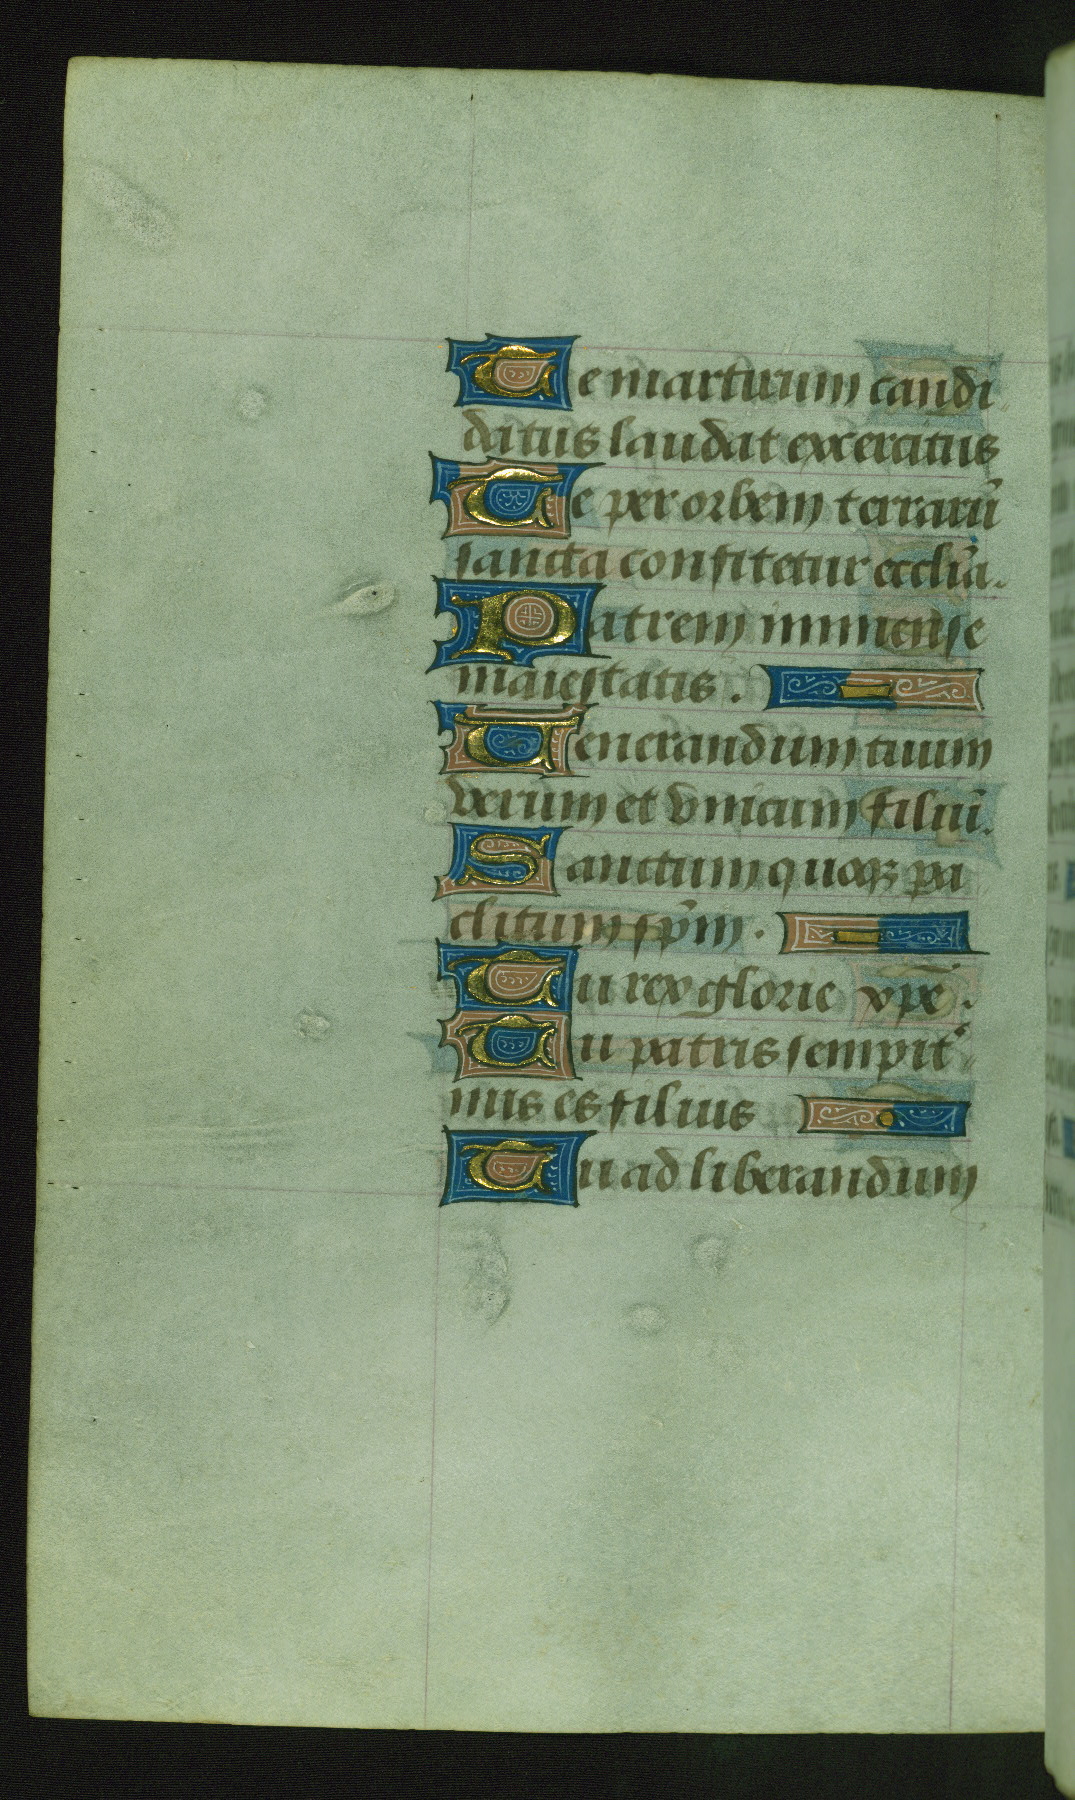 Te marturum candi
datus laudat excercitus
Te per orbem terrarū
sancta confitetur ecclīa.
Patrem inmense
maiestatis.
Uenerandum tuum
verum et vnicum filiū.
Sanctum quoqꝫ pa
clitum sp̄m.
Tu rex glorie xp̄e.
Tu patris sempit᾽
nus es filius
Tu ad liberandum